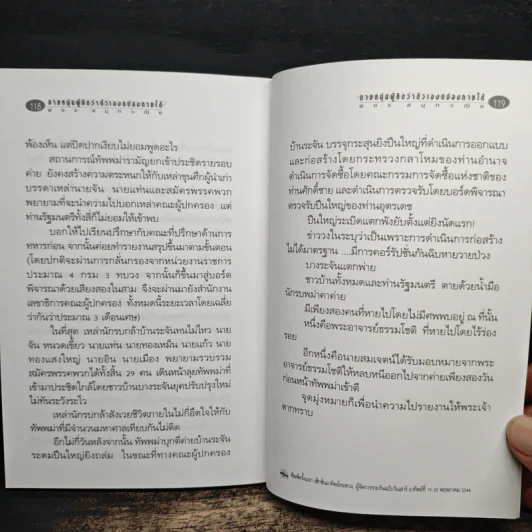 118 ชายหนุ่มผู้คิดว่าตัวเองแปลงกายได้
พ้องเห็น แต่ปิดปากเงียบไม่ยอมพูดอะไร
สถานการณ์ทัพพม่ารามัญยกเข้าประชิดรายรอบ
ค่าย ยังคงสร้างความตระหนกให้กับเหล่าขุนศึกผู้นำเก่า
บรรดาเหล่านายจัน นายแท่นและสมัครพรรคพวก
พยายามที่จะนำความไปบอกเหล่าคณะผู้ปกครอง แต่
ท่านรัฐมนตรีทั้งสี่ก็ไม่ยอมให้เข้าพบ
บอกให้ไปเปรียนปรึกษากับคณะที่ปรึกษาด้านการ
ทหารก่อน จากนั้นค่อยทำรายงานสรุปขึ้นมาตามขั้นตอน
(โดยปกติจะผ่านการกลั่นกรองจากหน่วยงานราชการ
ประมาณ 4 กรม 3 ทบวง จากนั้นก็ขึ้นมาสู่บอร์ด
พิจารณาด้วยเสียงสองในสาม จึงจะผ่านมายังสำนักงาน
เลขาธิการคณะผู้ปกครอง ทั้งหมดนี้ระยะเวลาโดยเฉลี่ย
ว่ากันว่าประมาณ 3 เดือนเศษ)
ในที่สุด เหล่านักรบกล้าบ้านระจันทนไม่ไหว นาย
จัน หนวดเขี้ยว นายแท่น นายทองเหม็น นายแก้ว นาย
ทองแสงใหญ่ นายอิน นายเมือง พยายามรวบรวม
สมัครพรรคพวกได้ทั้งสิ้น 29 คน เดินหน้าลุยทัพพม่าที่
เข้ามาประชิดใกล้โดยชาวบ้านบางระจันยุคปรับปรุงใหม่
ไม่ทันระวังระไว
เหล่านักรบกล้าสังเวยชีวิตภายในไม่กี่อึดใจให้กับ
ทัพพม่าที่มีจำนวนมหาศาลเทียบกันไม่ติด
อีกไม่กี่วันหลังจากนั้น ทัพพม่าบุกตีค่ายบ้านระจัน
ระดมปืนใหญ่ยิงถล่ม ในขณะที่ทางคณะผู้ปกครอง
ชายหนุ่มผู้คิดว่าตัวเองแปลงกายได้ 119
บ้านระจัน บรรจุกระสุนยิงปืนใหญ่ที่ดำเนินการออกแบบ
และก่อสร้างโดยกระทรวงกลาโหมของท่านอำนาจ
ดำเนินการจัดซื้อโดยคณะกรรมการจัดซื้อแห่งชาติของ
ท่านศักดิ์ชาย และดำเนินการตรวจรับโดยบอร์ดพิจารณา
ตรวจรับปืนใหญ่ของท่านอุตรเดช
ปืนใหญ่ระเบิดแตกพังยับตั้งแต่ยิงนัดแรก!
ข่าววงในระบุว่าเป็นเพราะการดำเนินการก่อสร้าง
ไม่ได้มาตรฐาน ....มีการคอร์รัปชั่นกันฉิบหายวายป่วง
บางระจันแตกพ่าย
ชาวบ้านทั้งหมดและท่านรัฐมนตรี ตายด้วยน้ำมือ
นักรบพม่าคาค่าย
มีเพียงสองคนที่หายไปโดยไม่มีศพพบอยู่ ณ ที่นั้น
หนึ่งคือพระอาจารย์ธรรมโชติ ที่หายไปโดยไร้ร่อง
รอย
อีกหนึ่งคือนายสมเจตน์ได้รับมอบหมายจากพระ
อาจารย์ธรรมโชติให้หลบหนีออกไปจากค่ายเพียงสองวัน
ก่อนหน้าทัพพม่าเข้าตี
จุดมุ่งหมายก็เพื่อนำความไปรายงานให้พระเจ้า
ตากทราบ